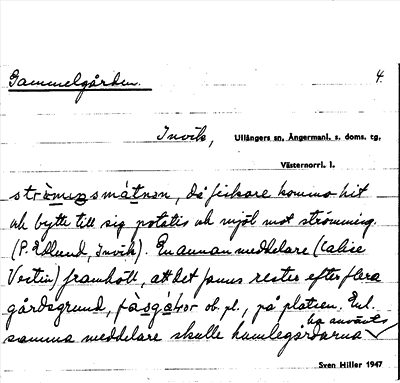 Gammelgården. 4.
Invik, Ullångers sn, Ångermanl. s. doms. tg,
Västernorrl. l.
strömıŋsmátnən, då fiskare kommo hit
och bytte till sig potatis och mjöl mot strömming.
(P. Edlund, Invik). En annan meddelare (Calise
Vestin) framhöll, att det funns rester efter flera
gårdsgrund, fàsgá₄ar ob. pl., på platsen. Enl.
samma meddelare skulle humlegårdarna
ha använts
Sven Hiller 1947